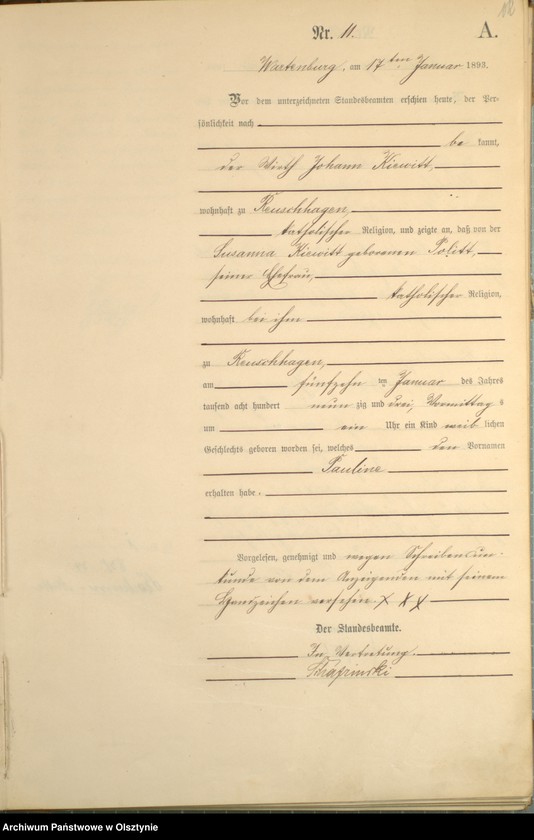 12
Nr. 11.
A.
Wartenburg, am 17ten Januar 1893.
Vor dem unterzeichneten Standesbeamten erschien heute, der Per-
sönlichkeit nach
be kannt,
der Wirth Johann Kiewitt,
wohnhaft zu Reuschhagen,
katholischer Religion, und zeigte an, daß von der
Susanna Kiewitt geborenen Politt,
seiner Ehefrau,
katholischer Religion,
wohnhaft bei ihm
zu Reuschhagen,
am fünfzehn ten Januar des Jahres
tausend acht hundert neun zig und drei, Vormittag s
um ein Uhr ein Kind weib lichen
Geschlechts geboren worden sei, welches den Vornamen
Pauline
erhalten habe.
Vorgelesen, genehmigt und wegen Schreibensun-
kunde von dem Anzeigenden mit seinem
Handzeichen versehen. X X X
Der Standesbeamte.
In Vertretung.
Archiwum Państwowe w Olsztynie